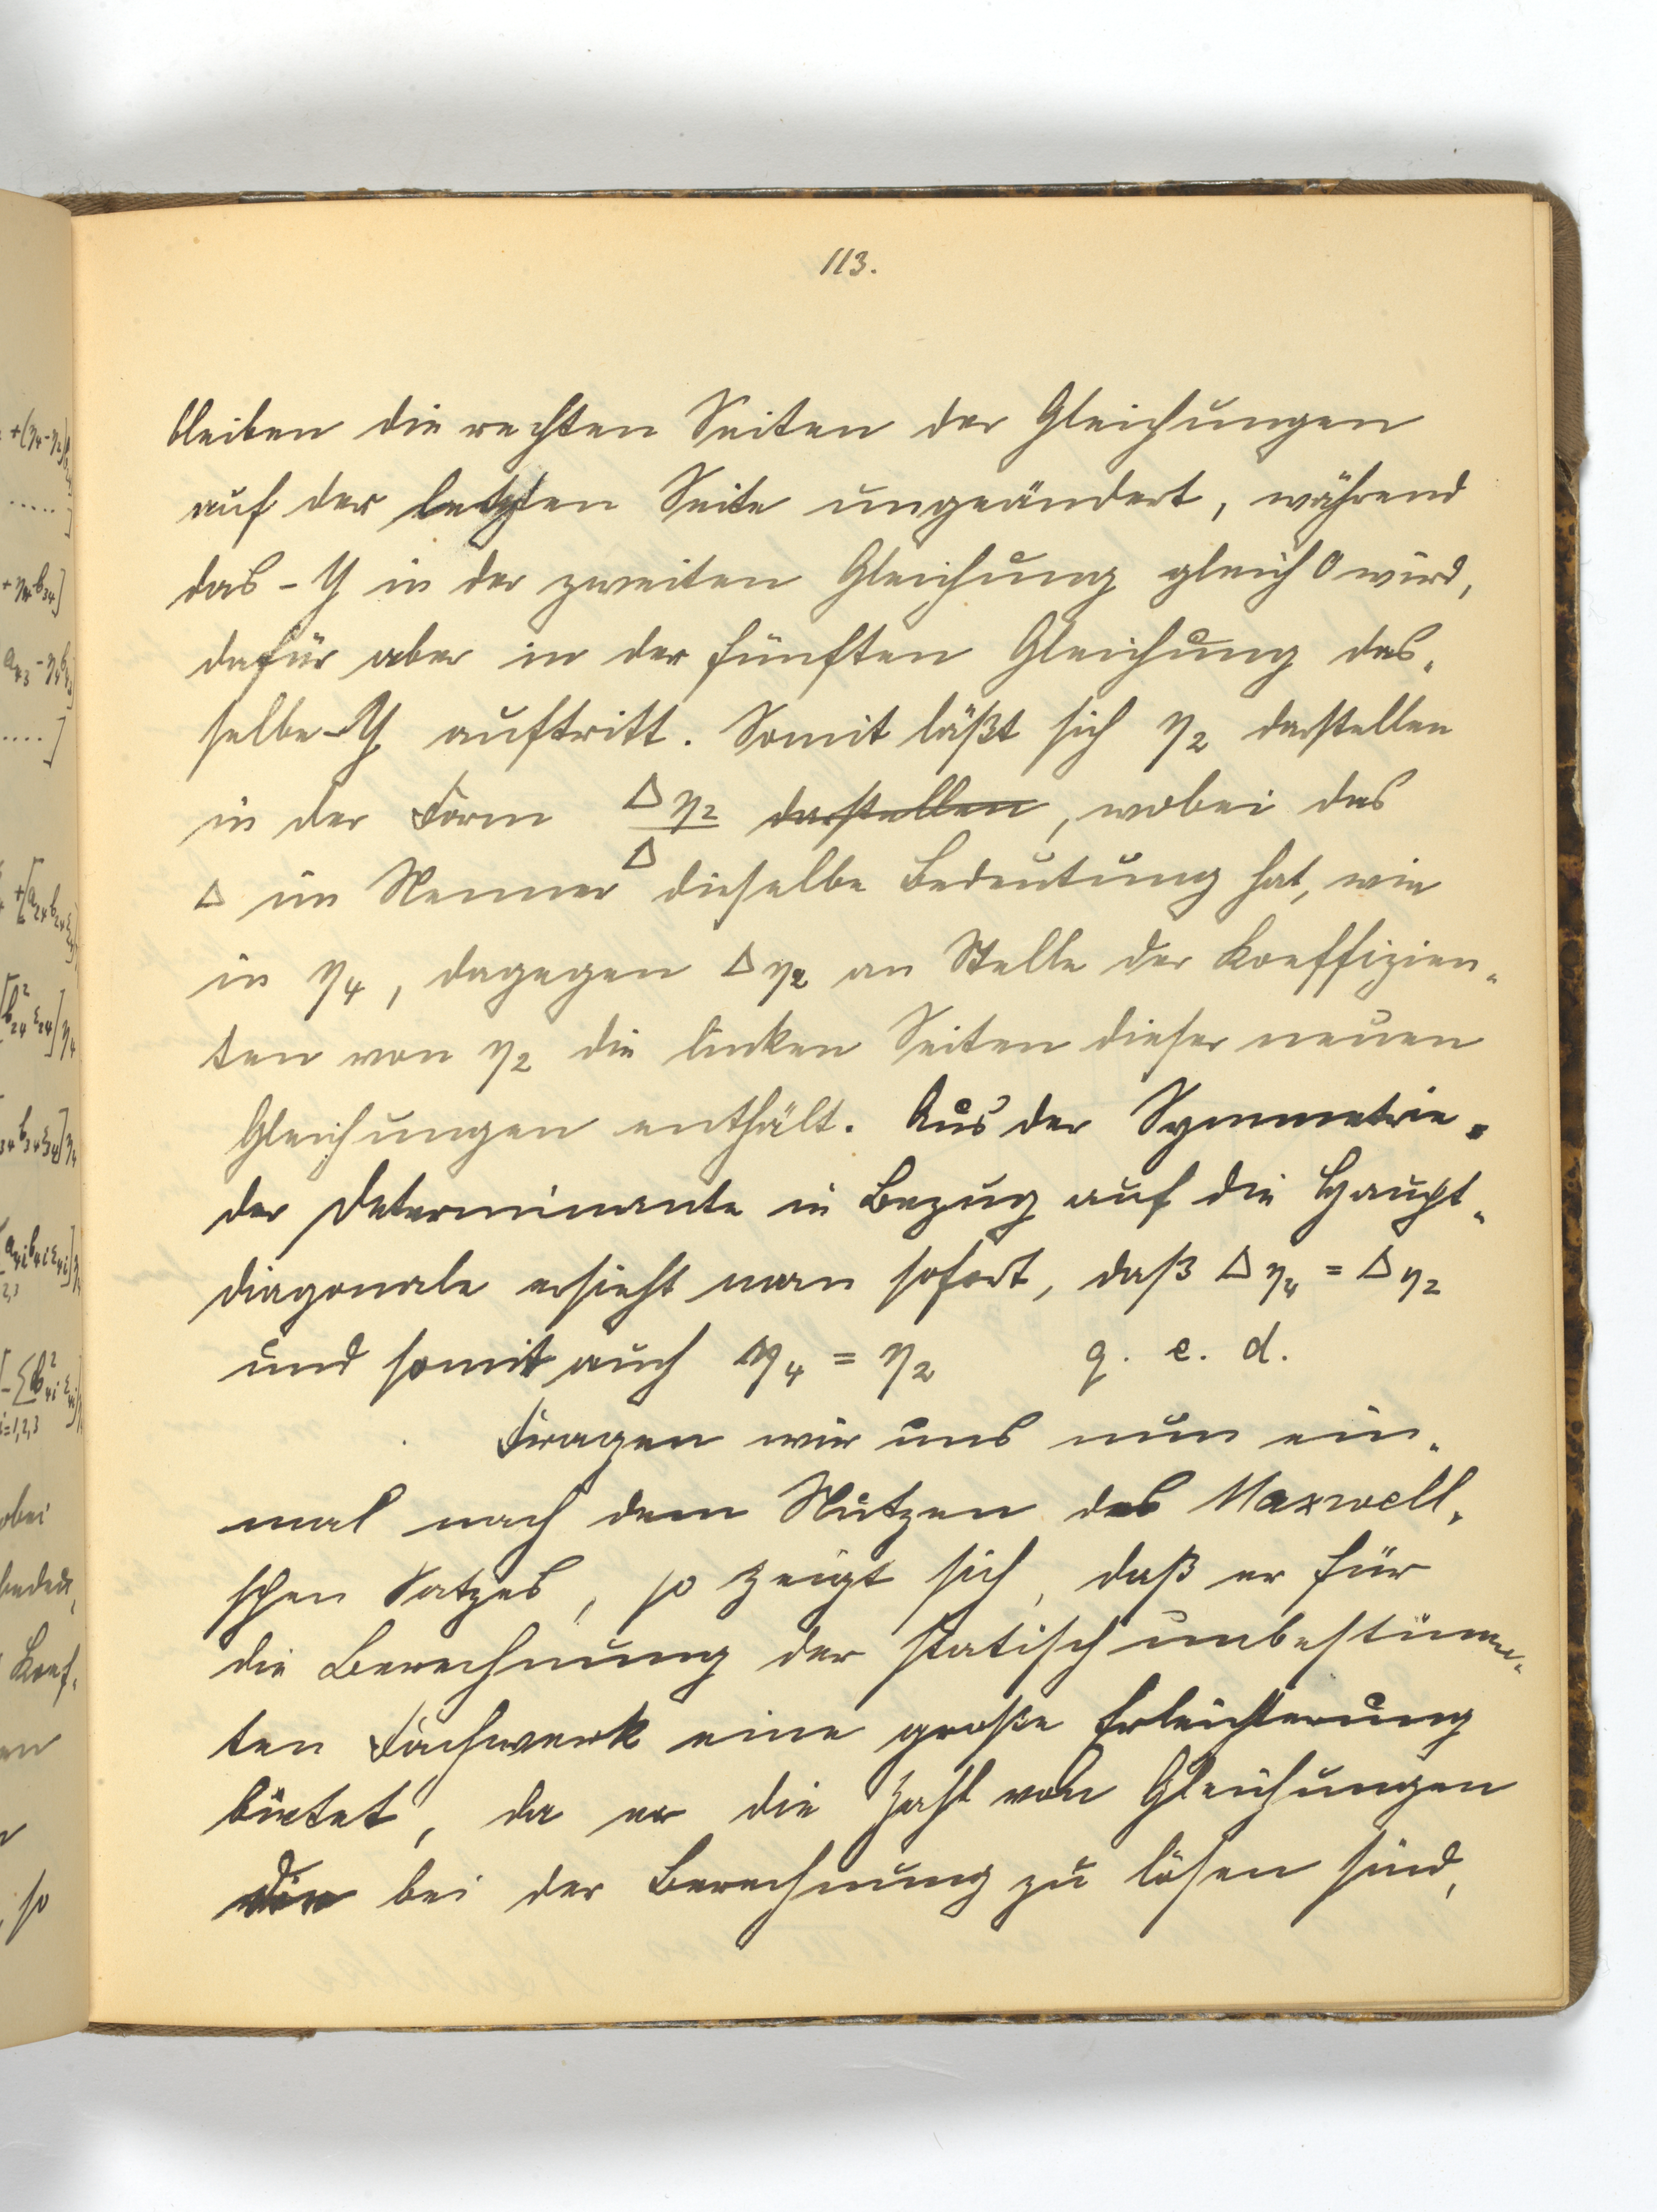 113.
bleiben die rechten Seiten der Gleichungen
auf der letzten Seite ungeändert, während
das -Y in der zweiten Gleichung gleich 0 wird,
dafür aber in der fünften Gleichung das-
selbe -Y auftritt. Somit läßt sich η₂ darstellen
in der Form Δη₂/Δ darstellen, wobei das
Δ im Nenner dieselbe Bedeutung hat, wie
in η₄, dagegen Δη₂ an Stelle der Koeffizien-
ten von η₂ die linken Seiten dieser neuen
Gleichungen enthält. Aus der Symmetrie
der Determinante in Bezug auf die Haupt-
diagonale ersieht man sofort, daß Δη₄ = Δη₂
und somit auch η₄ = η₂ q. e. d.
Fragen wir uns nun ein-
mal nach dem Nutzen des Maxwell-
schen Satzes, so zeigt sich, daß er für
die Berechnung der statisch unbestimm-
ten Fachwerk eine große Erleichterung
bietet, da er die Zahl von Gleichungen
die bei der Berechnung zu lösen sind,